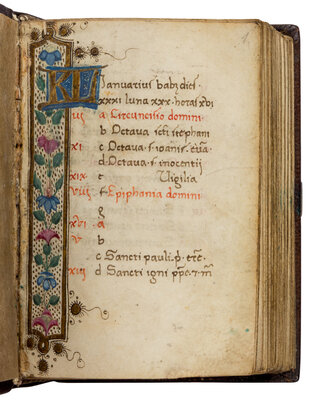 1
KL Ianuarius habz dies
xxxi luna xxx. horas xvi
iii a Circuncisio domini
b Octava scti stephani
xi c Octava s. ioanis. eua.
d Octava s. inocentii
xix e Vigilia
viii f Epiphania domini
g
xvi a
v b
c Sancti pauli. p. erē.
xiii d Sancti igni ppe. 7. m̄